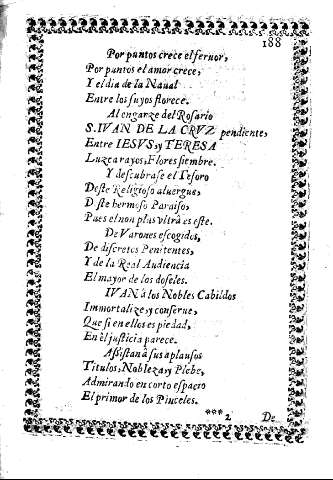 188
Por puntos crece el feruor,
Por puntos el amor crece,
Y el dia de la Naual
Entre los suyos florece.
Al engarze del Rosario
S. IVAN DE LA CRVZ pendiente,
Entre IESVS, y TERESA
Luzca rayos, Flores siembre.
Y descubrase el Tesoro
Deste Religioso aluergue,
Deste hermoso Paraiso,
Pues el non plas vltrà es este.
De Varones escogidos,
De discretos Penitentes,
Y de la Real Audiencia
El mayor de los doseles.
IVAN à los Nobles Cabildos
Immortalize, y conserue,
Que si en ellos es piedad,
En èl justicia parece.
Assistan à sus aplausos
Titulos, Nobleza, y Plebe,
Admirando en corto espacio
El primor de los Pinceles.
***2 De